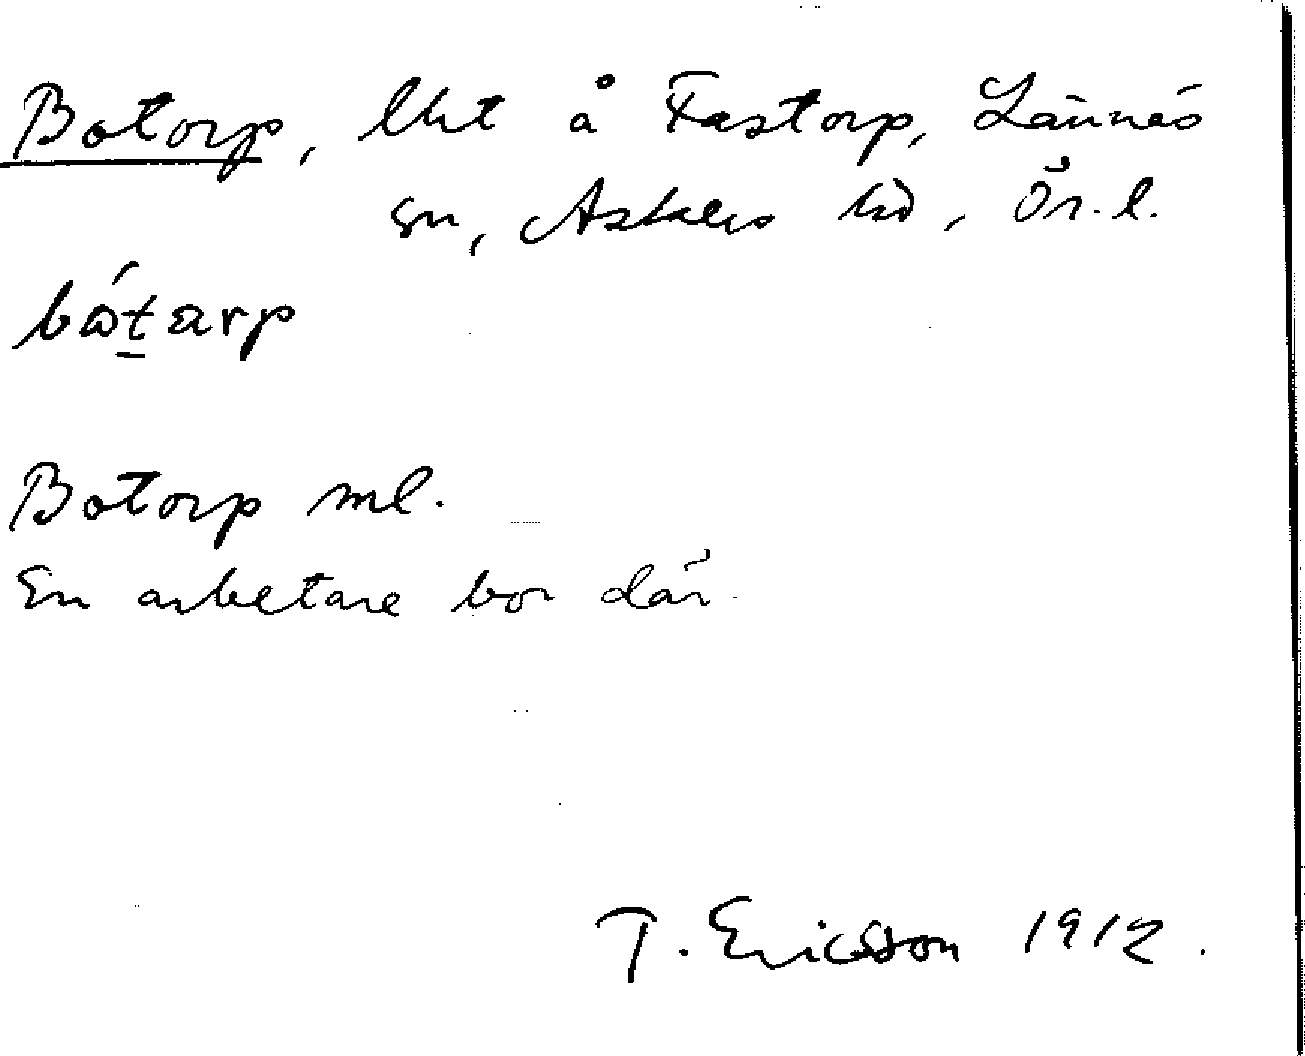 Botorp, lht å Fastorp, Lännäs
sn, Askers hd, Ör. l.
bótarp
Botorp ml.
En arbetare bor där.
T. Ericsson 1912.